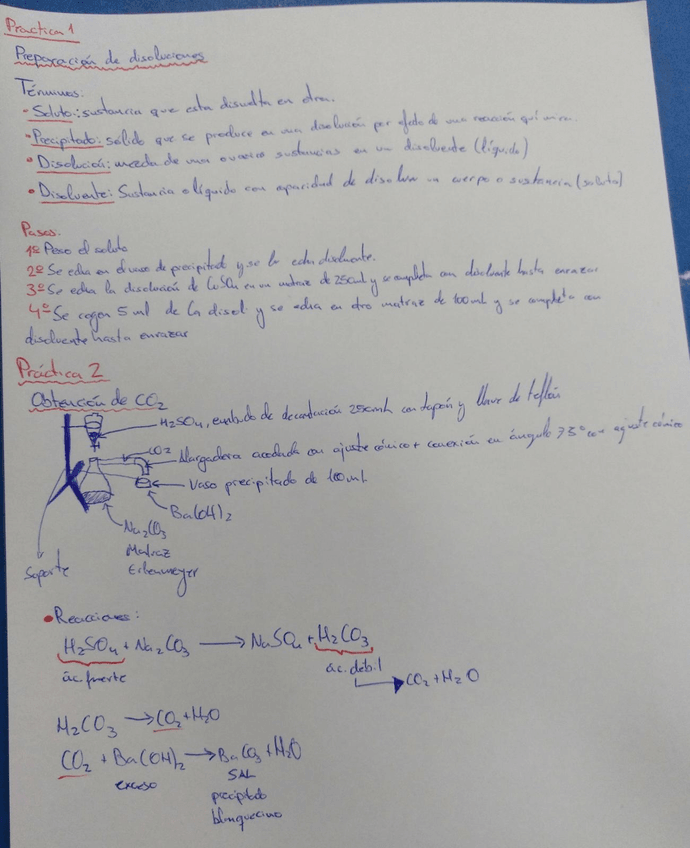 Practica 1
Preparación de disoluciones
Términos:
- Soluto: sustancia que esta disuelta en otra.
- Precipitado: sólido que se produce en una disolución por efecto de una reacción química.
- Disolución: mezcla de una o varias sustancias en un disolvente (líquido)
- Disolvente: Sustancia o líquido con capacidad de disolver un cuerpo o sustancia (soluto)
Pasos:
1º Peso el soluto
2º Se echa en el vaso de precipitad y se le echa disolvente.
3º Se echa la disolución de CuSO4 en un matraz de 250ml y se completa con disolvente hasta enrazar
4º Se cogen 5 ml de la disol. y se echa en otro matraz de 100ml y se completa con
disolvente hasta enrazar
Práctica 2
Obtención de CO2
H2SO4, embudo de decantación 250ml con tapón y llave de teflón
CO2
Alargadera acodada con ajuste cónico + conexión en ángulo 75° con ajuste cónico
Vaso precipitado de 100ml
Ba(OH)2
Na2CO3
Matraz
Erlenmeyer
Soporte
• Reacciones:
H2SO4 + Na2CO3 → NaSO4 + H2CO3
ác. fuerte
ác. debil
CO2 + H2O
H2CO3 → CO2 + H2O
CO2 + Ba(OH)2 → BaCO3 + H2O
exceso
SAL
precipitado
blanquecino